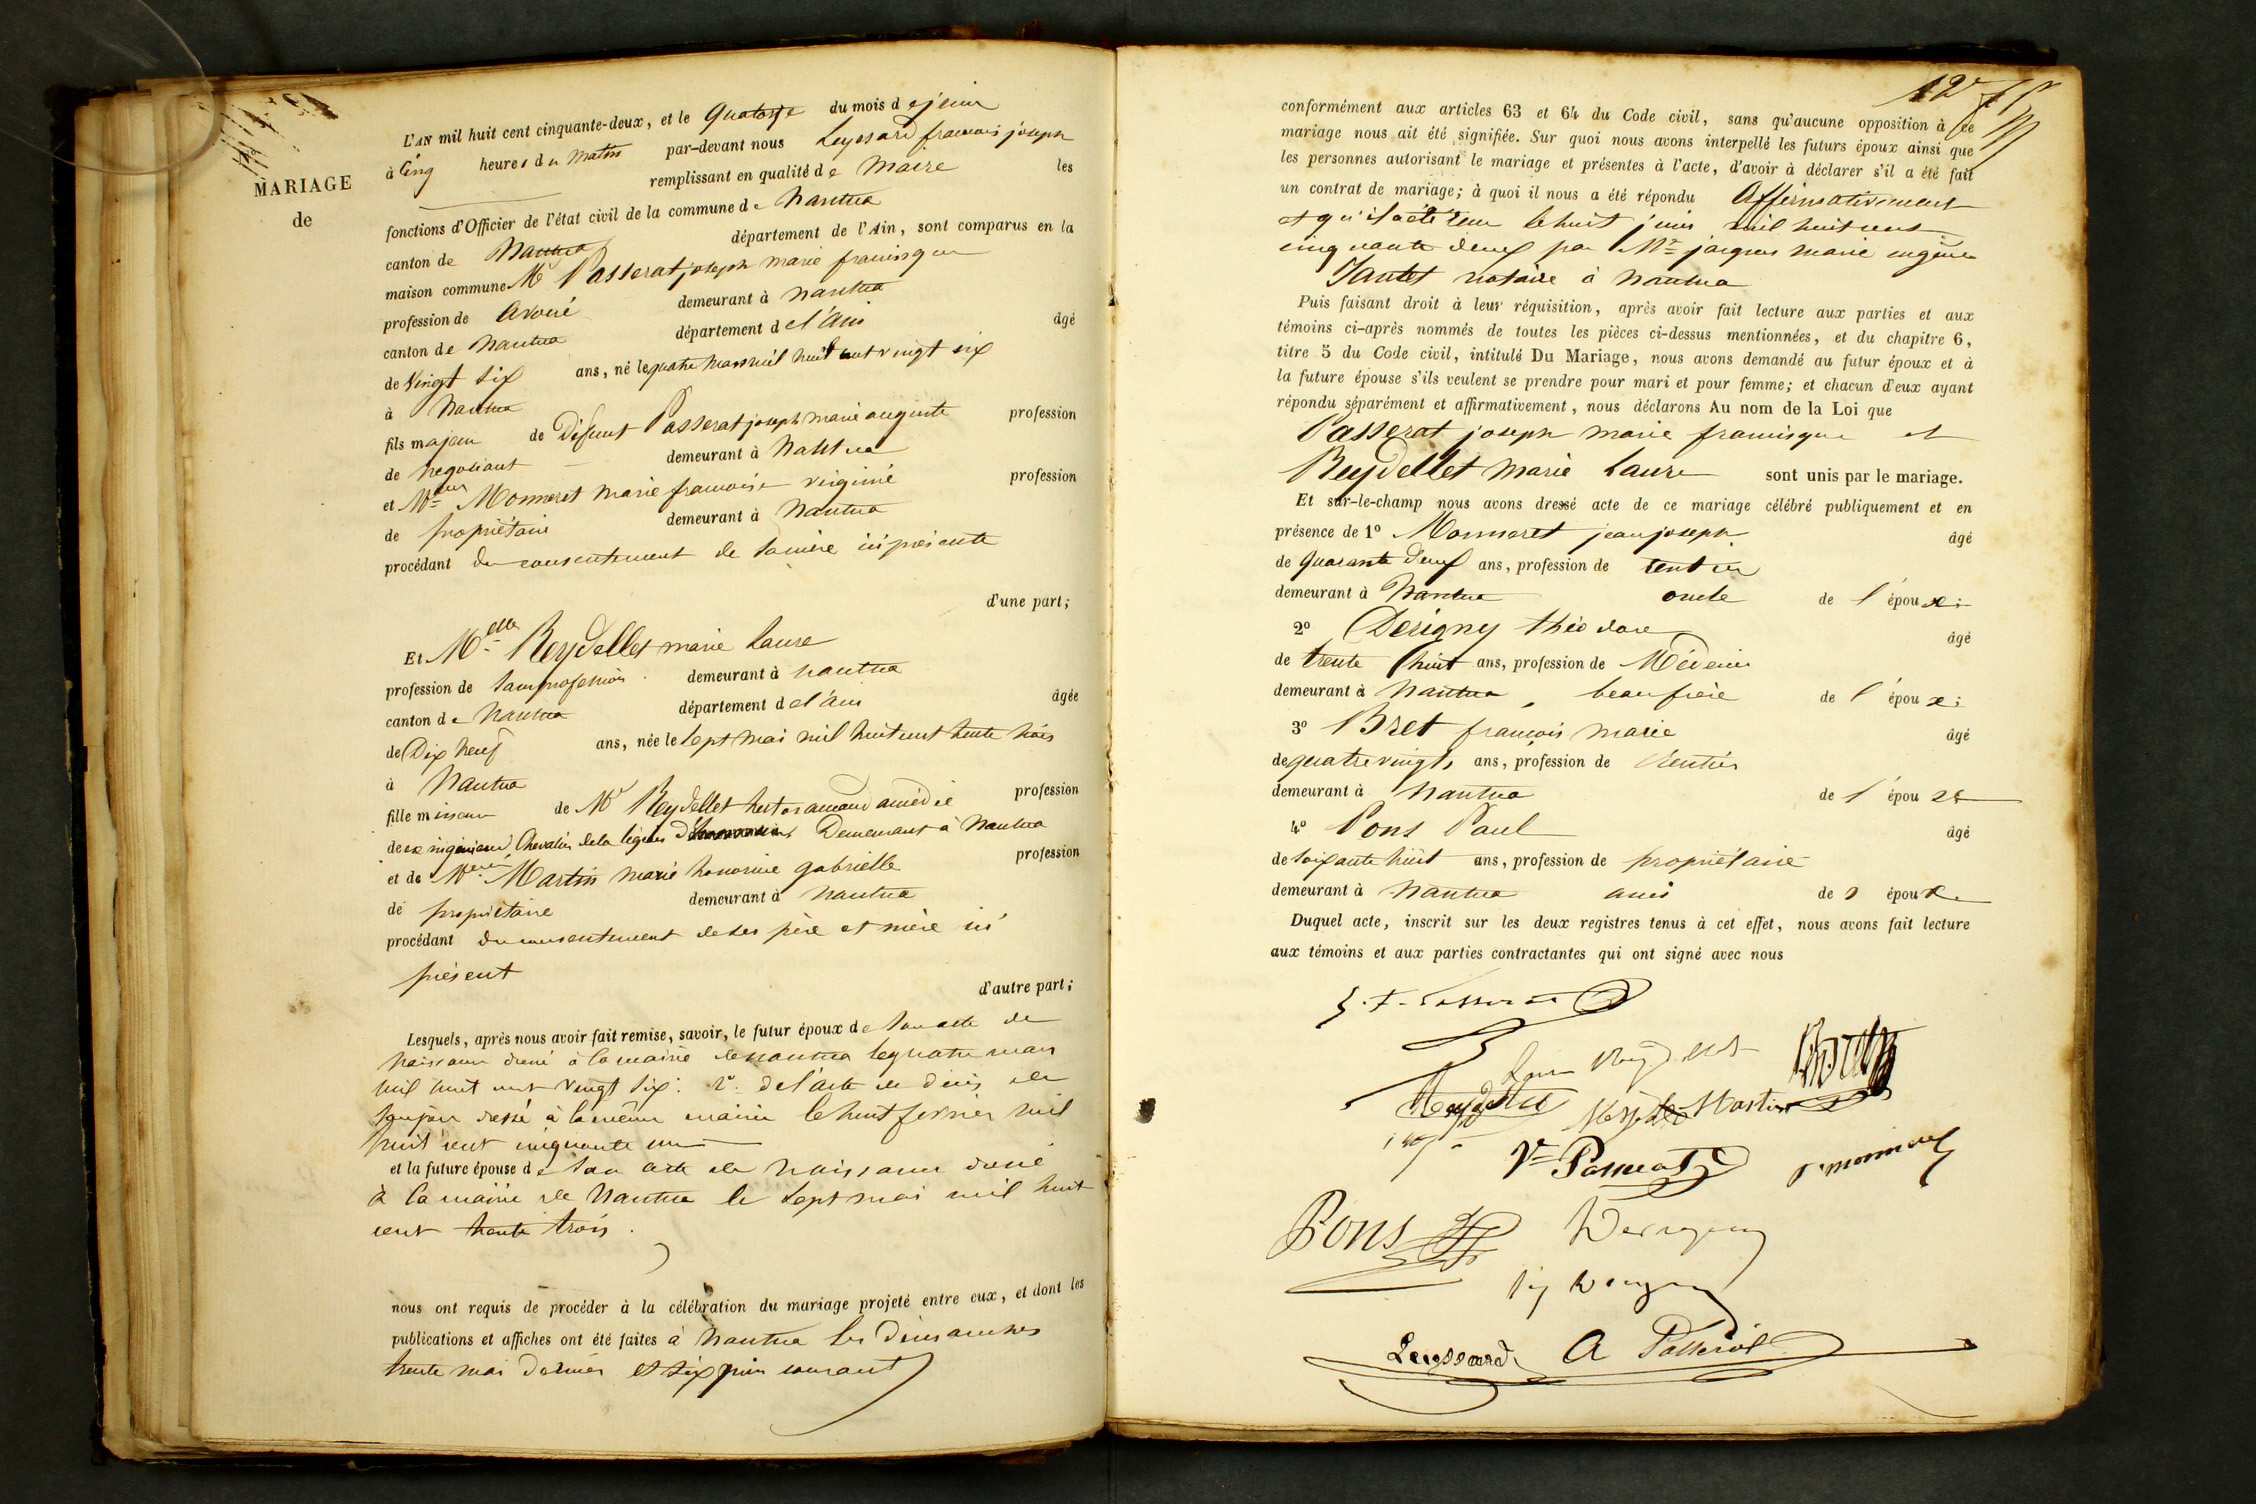 MARIAGE
de
L'AN mil huit cent cinquante-deux, et le quatorze du mois de juin
à cinq heures du matin par-devant nous Leyssard francois joseph
remplissant en qualité de Maire les
fonctions d'Officier de l'état civil de la commune de Nantua
canton de Nantua département de l'Ain, sont comparus en la
maison commune Mr Passerat joseph marie francisque
profession de avoué demeurant à nantua
canton de nantua département de l'ain âgé
de vingt six ans, né le quatre mars mil huit cent vingt six
à nantua
fils majeur de défunt Passerat joseph marie auguste profession
de négociant demeurant à nantua
et Monneret marie francoise virginie profession
de propriétaire demeurant à nantua
procédant du consentement de sa mère ici présente
d'une part;
Et Melle Reydellet marie laure
profession de sans profession demeurant à nantua
canton de nantua département de l'ain âgée
de Dix neuf ans, née le sept mai mil huit cent trente trois
à nantua
fille mineure de Mr Reydellet amédée profession
de ex ingénieur Chevalier de la légion Demeurant à nantua
et de Martin marie honorine gabrielle profession
de propriétaire demeurant à nantua
procédant du consentement de ses père et mère ici
présent
d'autre part;
Lesquels, après nous avoir fait remise, savoir, le futur époux de son acte de
naissance dressé à la mairie de nantua le quatre mars
mil huit cent vingt six: 2° de l'acte de décès de
son père dressé à la même mairie le huit fevrier mil
huit cent cinquante un
et la future épouse de son acte de naissance dressé
à la mairie de Nantua le sept mai mil huit
cent trente trois.
nous ont requis de procéder à la célébration du mariage projeté entre eux, et dont les
publications et affiches ont été faites à nantua les dimanches
trente mai dernier et six juin courant
12e
conformément aux articles 63 et 64 du Code civil, sans qu'aucune opposition à ce
mariage nous ait été signifiée. Sur quoi nous avons interpellé les futurs époux ainsi que
les personnes autorisant le mariage et présentes à l'acte, d'avoir à déclarer s'il a été fait
un contrat de mariage; à quoi il nous a été répondu affirmativement
et qu'il a été reçu le huit juin mil huit cent
cinquante deux par Mr jacques marie eugène
Jantet notaire à nantua
Puis faisant droit à leur réquisition, après avoir fait lecture aux parties et aux
témoins ci-après nommés de toutes les pièces ci-dessus mentionnées, et du chapitre 6,
titre 5 du Code civil, intitulé Du Mariage, nous avons demandé au futur époux et à
la future épouse s'ils veulent se prendre pour mari et pour femme; et chacun d'eux ayant
répondu séparément et affirmativement, nous déclarons Au nom de la Loi que
Passerat joseph marie francisque et
Reydellet marie Laure sont unis par le mariage.
Et sur-le-champ nous avons dressé acte de ce mariage célébré publiquement et en
présence de 1° Monneret jean joseph âgé
de quarante deux ans, profession de rentier
demeurant à Nantua oncle de l'époux;
2° Derigny théodore âgé
de trente huit ans, profession de Médecin
demeurant à Nantua, beau frère de l'époux;
3° Bret francois marie âgé
de quatre vingts ans, profession de rentier
demeurant à nantua de l'épouse
4° Pons Paul âgé
de soixante huit ans, profession de propriétaire
demeurant à nantua ami de l'époux
Duquel acte, inscrit sur les deux registres tenus à cet effet, nous avons fait lecture
aux témoins et aux parties contractantes qui ont signé avec nous
J. F. Passerat
Reydellet
Reydellet
Martin
Ve Passerat
Pons
Derigny
Leyssard A Passerat